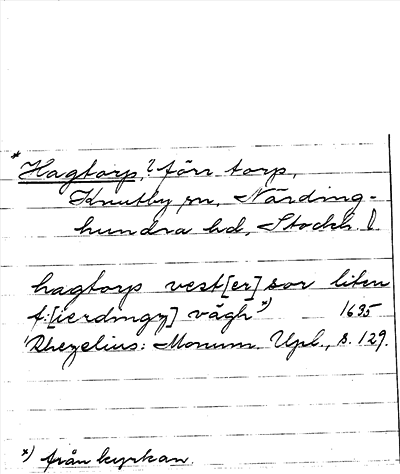 * Hagtorp, ? förr torp,
Knutby sn, Närding-
hundra hd, Stockh. l.
hagtorp vest[er] sor liten
f:[ierdingz] vägh *) 1635
Rhezelius: Monum. Upl., s. 129.
*) från kyrkan.